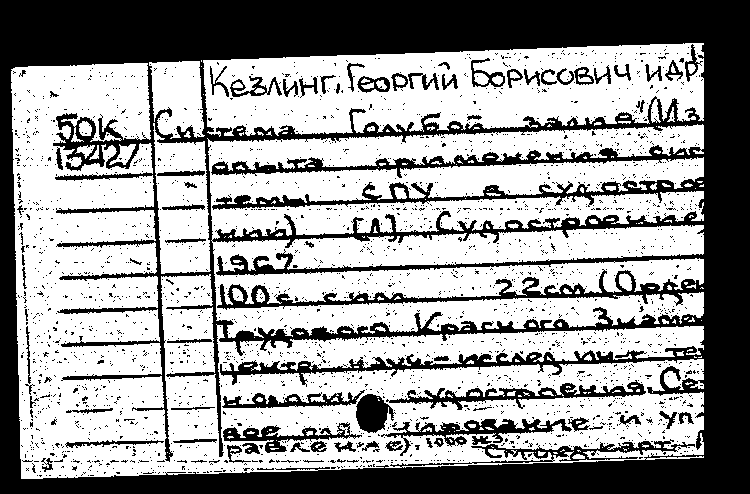 Кезлинг, Георгий Борисович и др.
50К Система Голубой залив" (Из
13427 опыта применения сис-
темы СПУ в судострое-
нии) [Л], „Судостроение",
1967.
100 с. с илл. 22 см. (Орден
Трудового Красного Знамен
центр. науч.-исслед. ин-т тех
нологии судостроения. Се-
вое пла нирование и уп-
равление). 1000 экз.
См. след. карт.